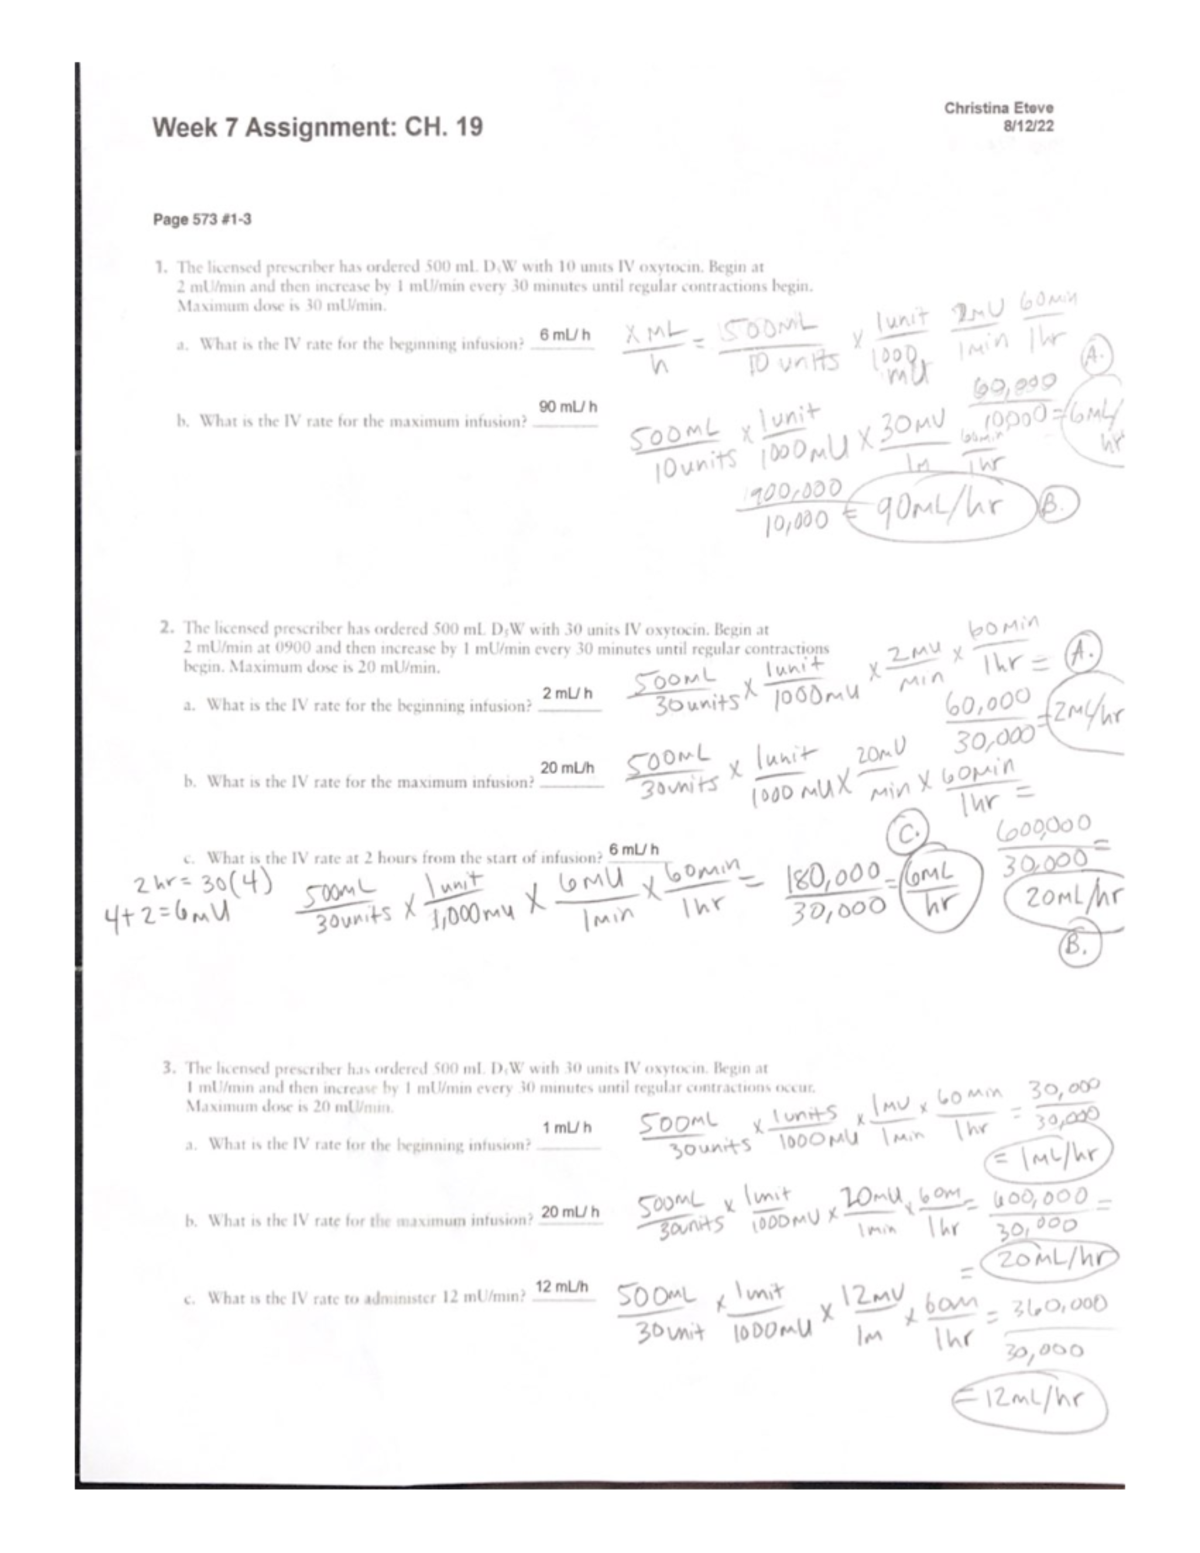 Christina Eteve
8/12/22
Week 7 Assignment: CH. 19
Page 573 #1-3
1. The licensed prescriber has ordered 500 mL D5W with 10 units IV oxytocin. Begin at
2 mU/min and then increase by 1 mU/min every 30 minutes until regular contractions begin.
Maximum dose is 30 mU/min.
a. What is the IV rate for the beginning infusion? 6 mL/ h
X ML/h = 500mL/10 units x 1unit/1000 mU 2mU/1min 60min/1hr
60,000/10,000 = 6mL/hr A.
b. What is the IV rate for the maximum infusion? 90 mL/ h
500mL/10units x 1unit/1000mU x 30mU/1m 60min/1hr
900,000/10,000 = 90mL/hr B.
2. The licensed prescriber has ordered 500 mL D5W with 30 units IV oxytocin. Begin at
2 mU/min at 0900 and then increase by 1 mU/min every 30 minutes until regular contractions
begin. Maximum dose is 20 mU/min.
a. What is the IV rate for the beginning infusion? 2 mL/ h
500mL/30units x 1unit/1000mU x 2mU/min x 60min/1hr = A.
60,000/30,000 = 2mL/hr
b. What is the IV rate for the maximum infusion? 20 mL/h
500mL/30units x 1unit/1000 mU x 20mU/min x 60min/1hr =
600,000/30,000 = 20mL/hr B.
c. What is the IV rate at 2 hours from the start of infusion? 6 mL/ h
2hr = 30(4)
4+2=6mU
500mL/30units x 1unit/1,000mu x 6mU/1min x 60min/1hr = 180,000/30,000 = 6mL/hr C.
3. The licensed prescriber has ordered 500 mL D5W with 30 units IV oxytocin. Begin at
1 mU/min and then increase by 1 mU/min every 30 minutes until regular contractions occur.
Maximum dose is 20 mU/min.
a. What is the IV rate for the beginning infusion? 1 mL/ h
500mL/30units x 1units/1000mU x 1mU/1min x 60min/1hr = 30,000/30,000
= 1mL/hr
b. What is the IV rate for the maximum infusion? 20 mL/ h
500mL/30units x 1unit/1000mU x 20mU/1min x 60m/1hr = 600,000/30,000 =
= 20mL/hr
c. What is the IV rate to administer 12 mU/min? 12 mL/h
500mL/30unit x 1unit/1000mU x 12mU/1m x 60m/1hr = 360,000/30,000
= 12mL/hr